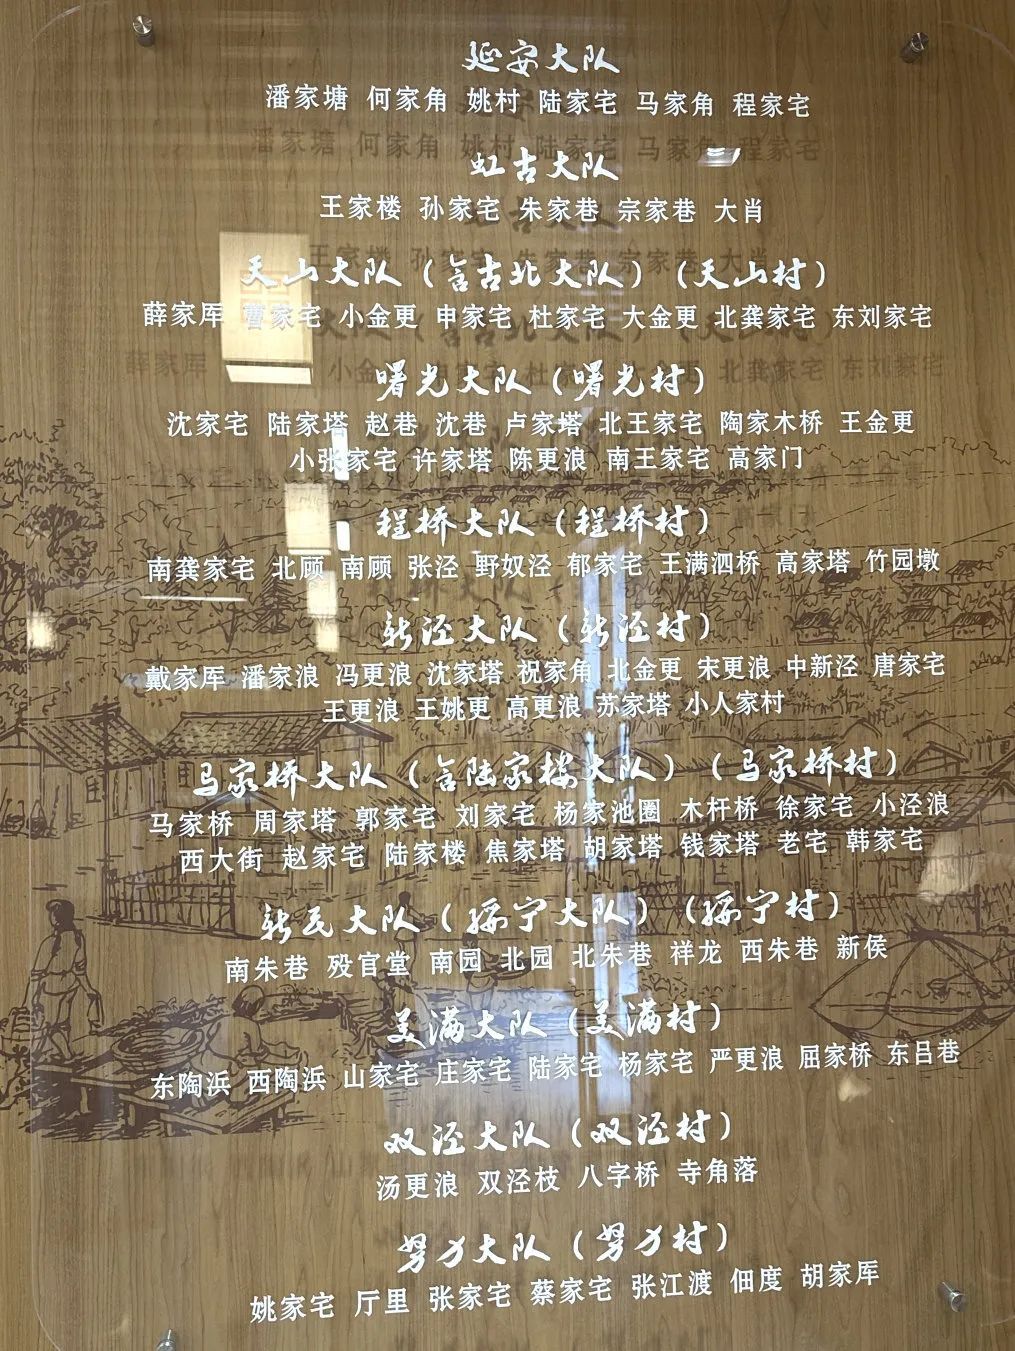 延安大队
潘家塘 何家角 姚村 陆家宅 马家角 程家宅
虹古大队
王家楼 孙家宅 朱家巷 宗家巷 大肖
天山大队（含古北大队）（天山村）
薛家厍 曹家宅 小金更 申家宅 杜家宅 大金更 北龚家宅 东刘家宅
曙光大队（曙光村）
沈家宅 陆家塔 赵巷 沈巷 卢家塔 北王家宅 陶家木桥 王金更
小张家宅 许家塔 陈更浪 南王家宅 高家门
程桥大队（程桥村）
南龚家宅 北顾 南顾 张泾 野奴泾 郁家宅 王满泗桥 高家塔 竹园墩
新泾大队（新泾村）
戴家厍 潘家浪 冯更浪 沈家塔 祝家角 北金更 宋更浪 中新泾 唐家宅
王更浪 王姚更 高更浪 苏家塔 小人家村
马家桥大队（含陆家楼大队）（马家桥村）
马家桥 周家塔 郭家宅 刘家宅 杨家池圈 木杆桥 徐家宅 小泾浪
西大街 赵家宅 陆家楼 焦家塔 胡家塔 钱家塔 老宅 韩家宅
新民大队（绥宁大队）（绥宁村）
南朱巷 殁官堂 南园 北园 北朱巷 祥龙 西朱巷 新侯
美满大队（美满村）
东陶浜 西陶浜 山家宅 庄家宅 陆家宅 杨家宅 严更浪 屈家桥 东吕巷
双泾大队（双泾村）
汤更浪 双泾枝 八字桥 寺角落
努力大队（努力村）
姚家宅 厅里 张家宅 蔡家宅 张江渡 佃度 胡家厍